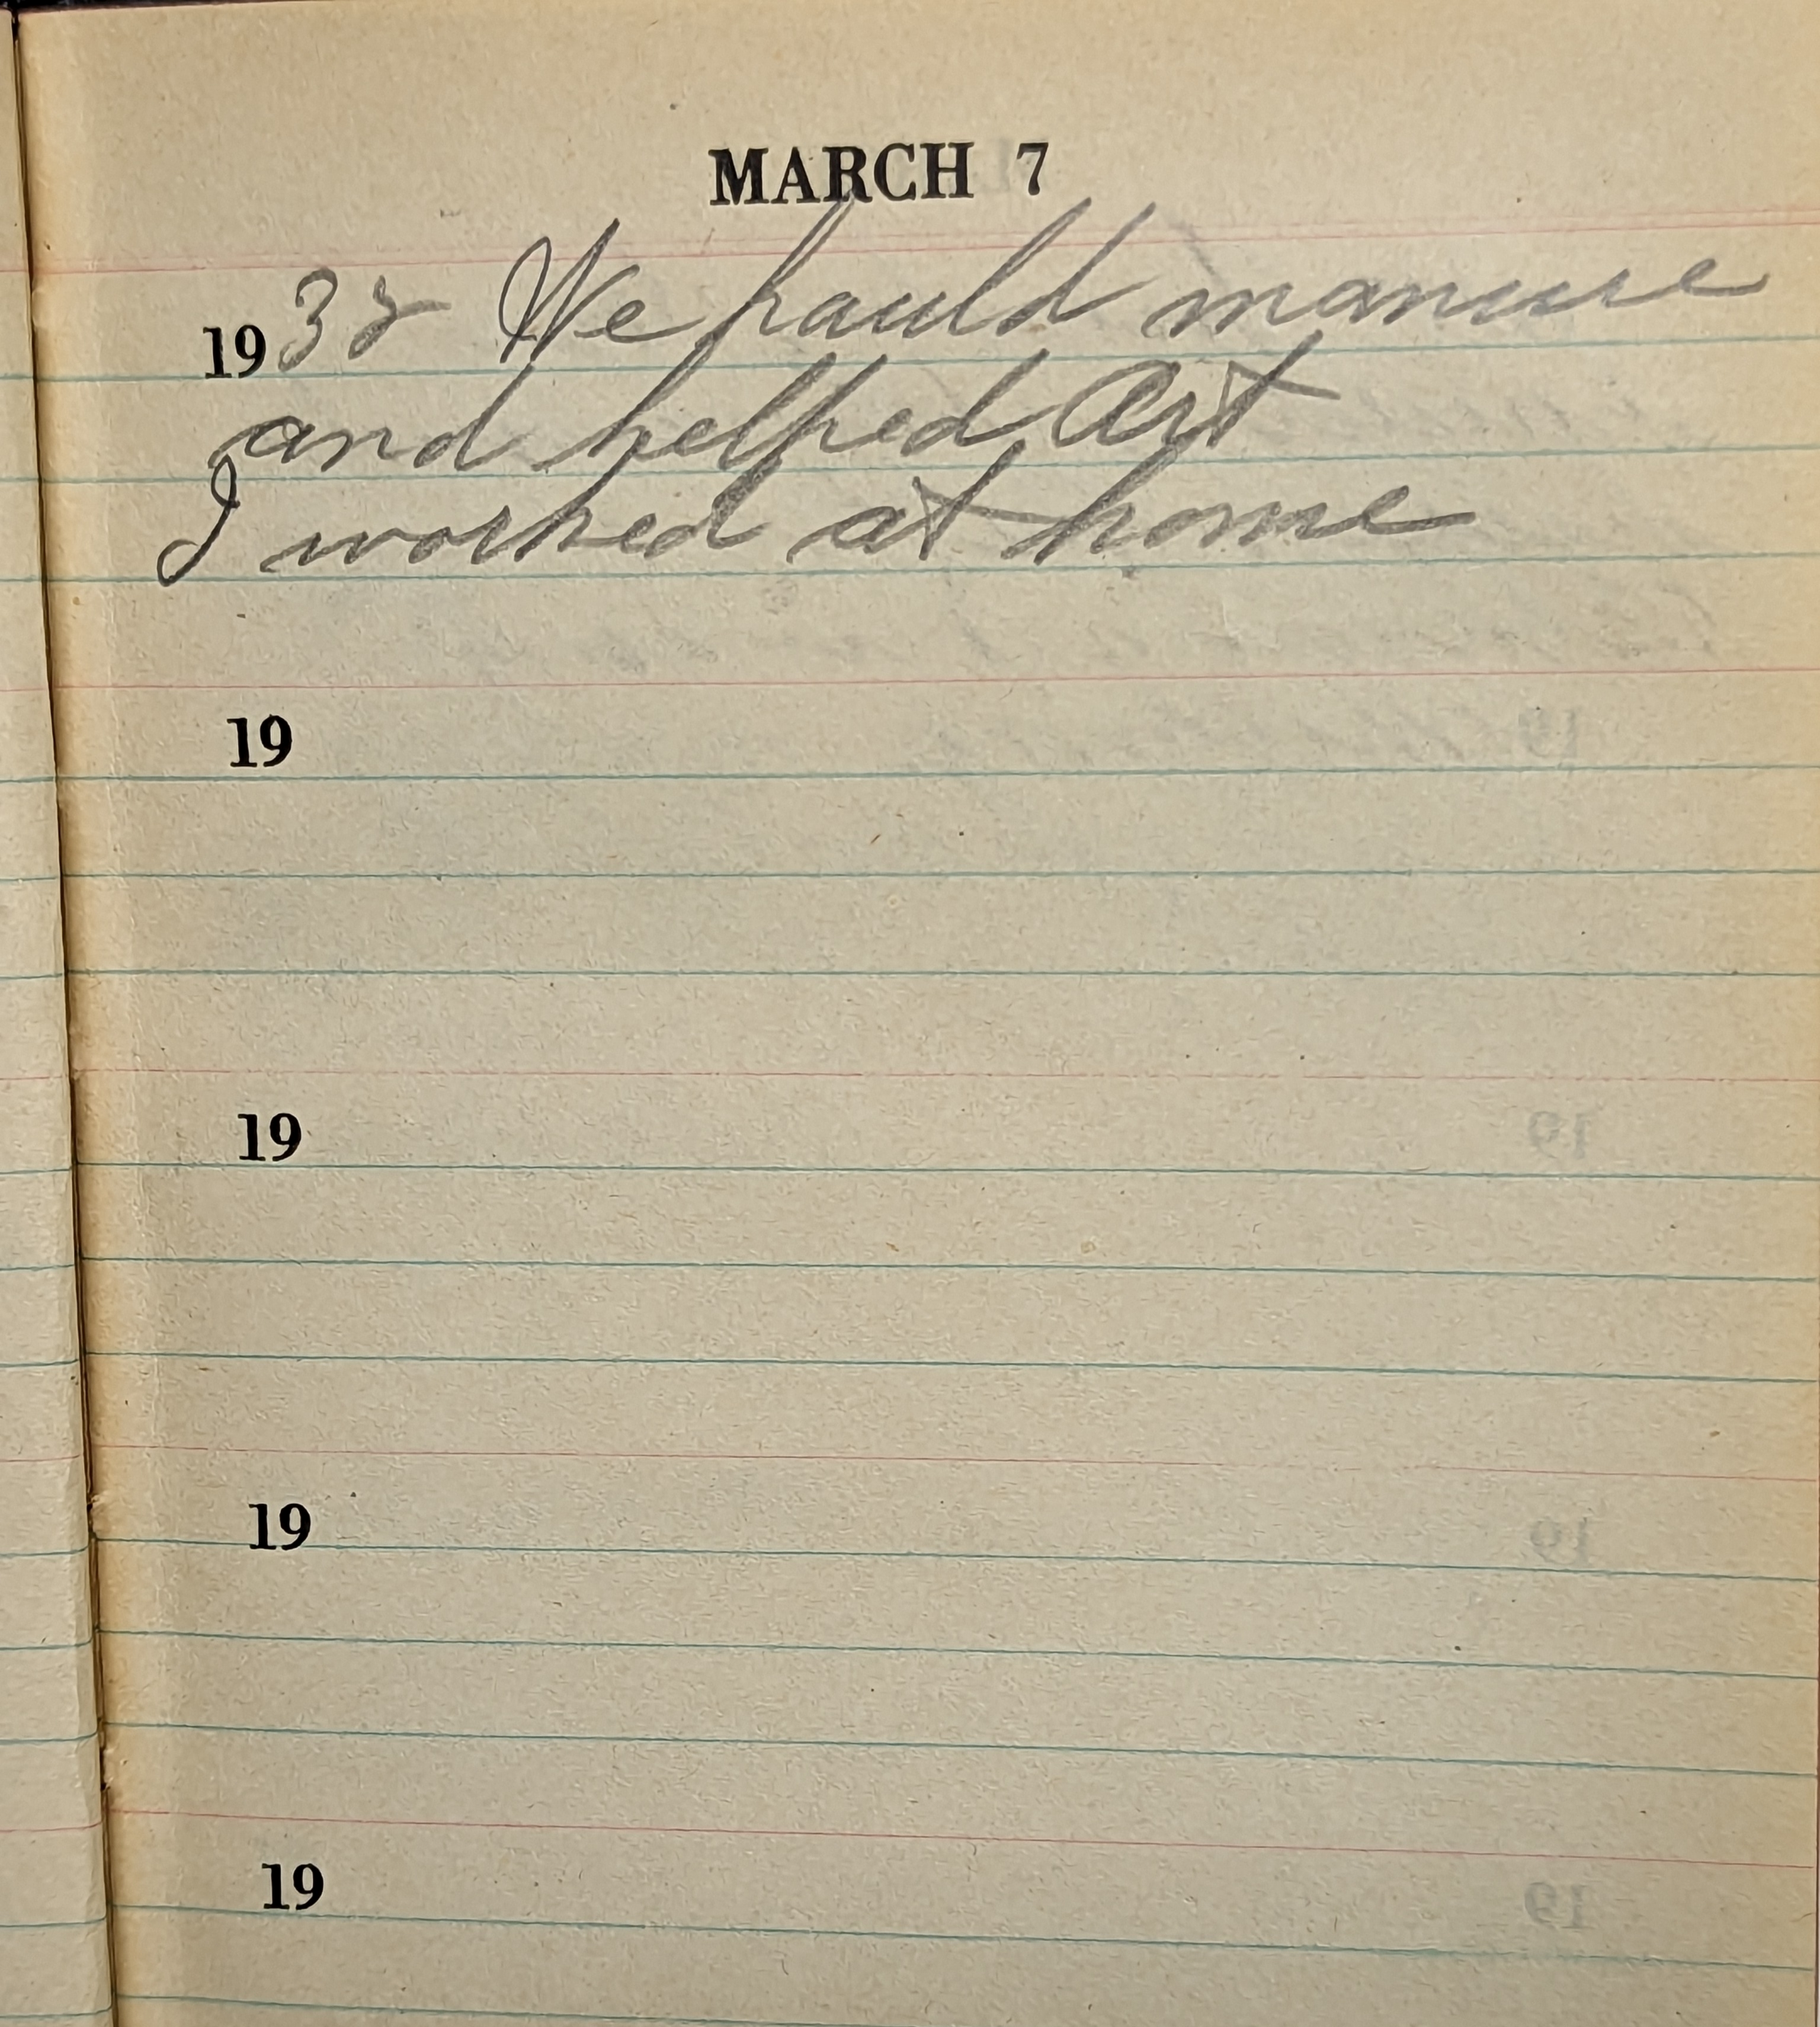 MARCH 7
1938 We hauld manure
and helped Art
I worked at home
19
19
19
19